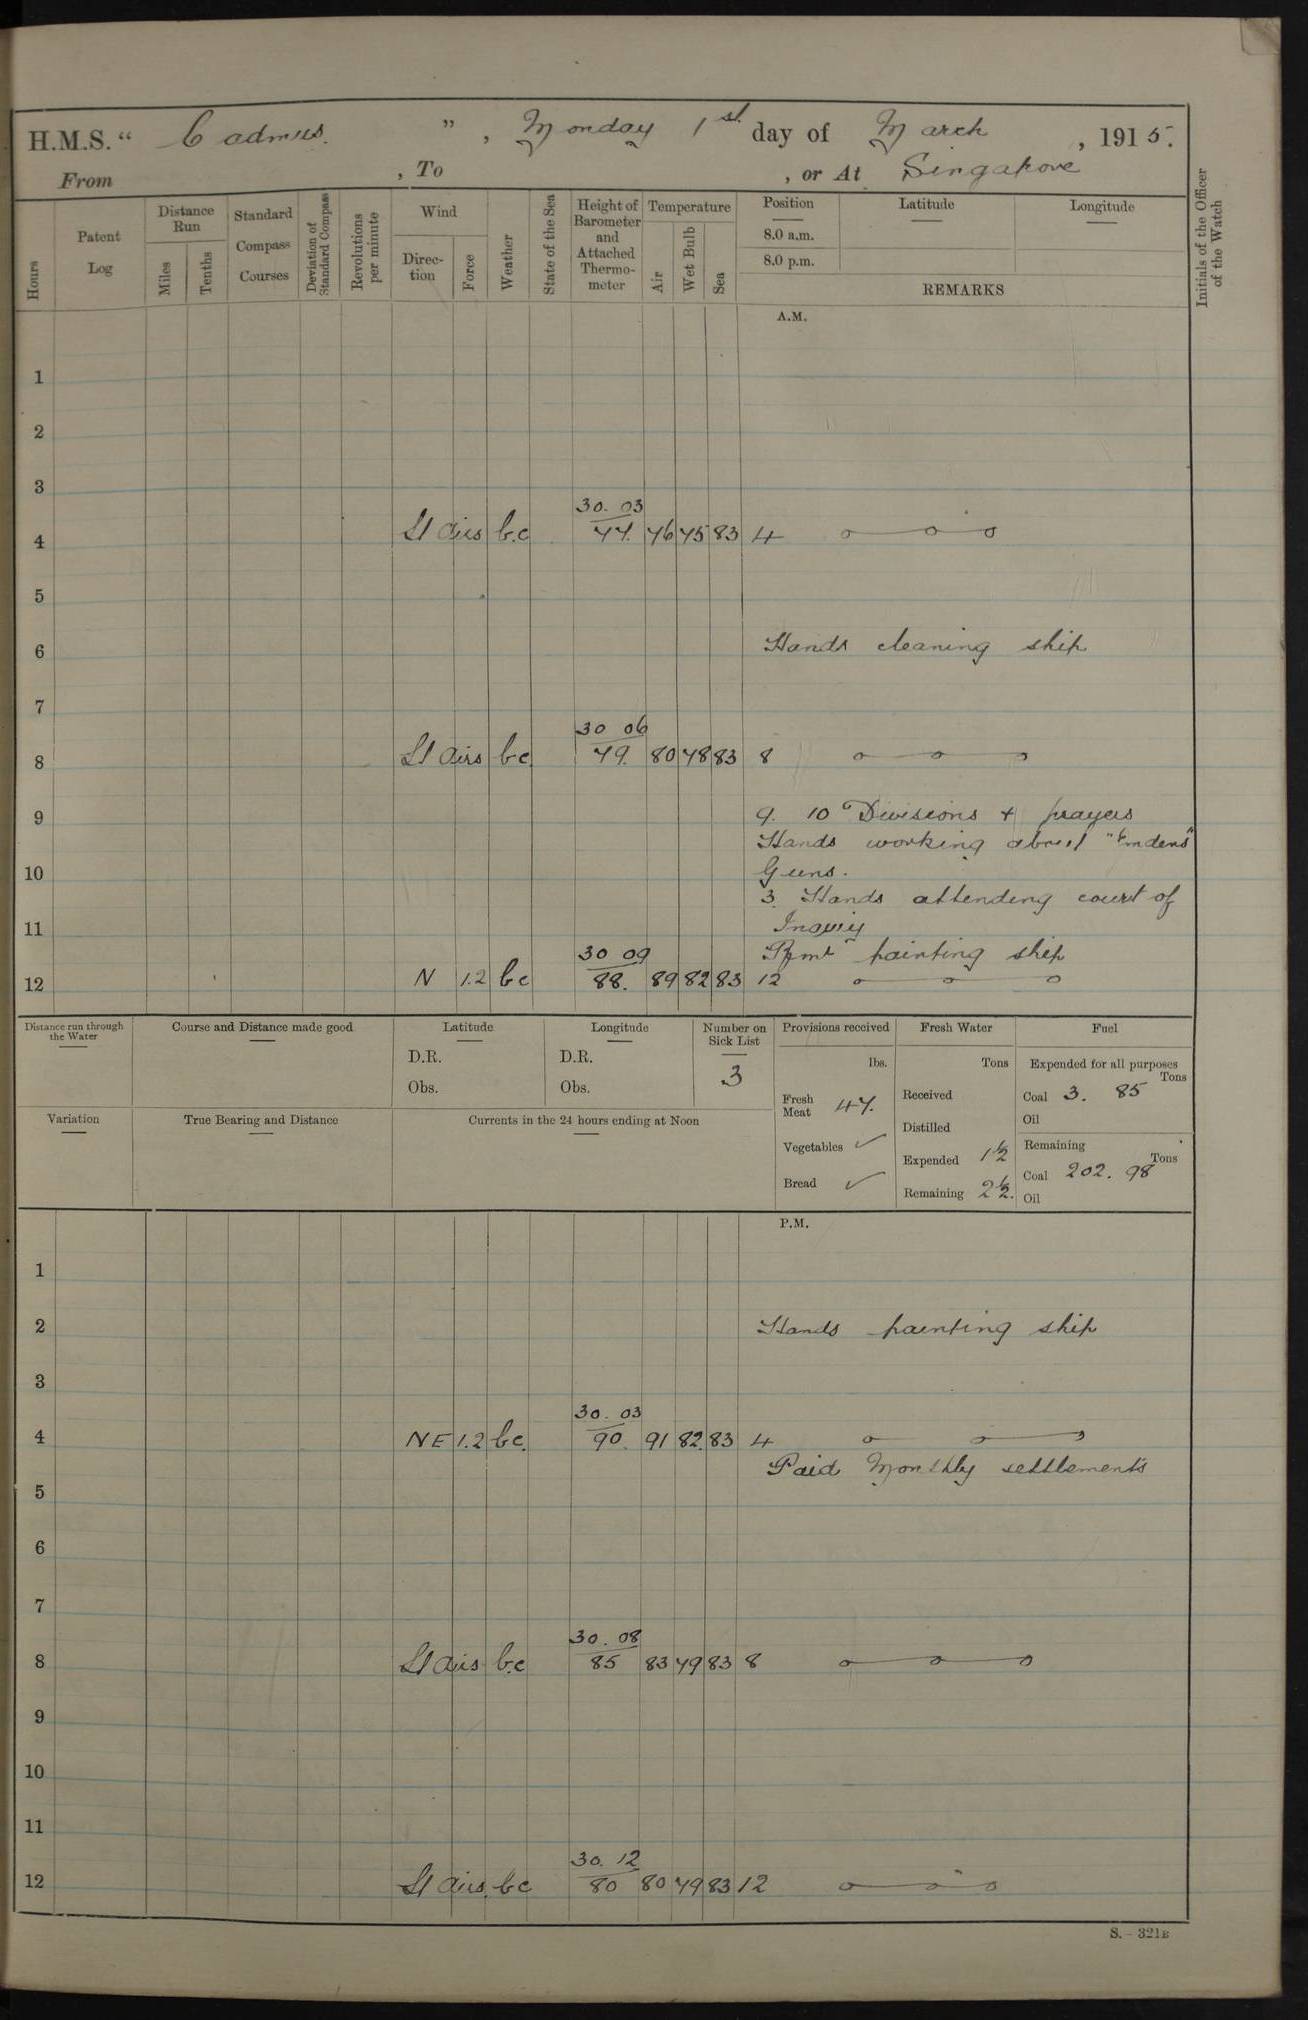 H.M.S. " Cadmus. ", Monday 1st day of March, 1915.
From , To , or At Singapore
Hours
Patent Log
Distance Run
Miles
Tenths
Standard Compass Courses
Deviation of Standard Compass
Revolutions per minute
Wind
Direc-tion
Force
Weather
State of the Sea
Height of Barometer and Attached Thermo-meter
Temperature
Air
Wet Bulb
Sea
Position
8.0 a.m.
8.0 p.m.
Latitude
Longitude
REMARKS
Initials of the Officer of the Watch
A.M.
1
2
3
30. 03
4 Lt airs b.c 77. 76 75 83 4
5
6 Hands cleaning ship
7
30 06
8 Lt airs bc. 79. 80 78 83 8
9 9. 10 Divisions + prayers
Hands working about "Emdens"
10 Guns.
3. Hands attending court of
11 Inquiry
30 09 painting ship
12 N 1.2 bc 88. 89 82 83 12
Distance run through the Water
Course and Distance made good
Latitude
D.R.
Obs.
Longitude
D.R.
Obs.
Number on Sick List
3
Provisions received
lbs.
Fresh Meat 47.
Vegetables ✓
Bread ✓
Fresh Water
Tons
Received
Distilled
Expended 1½
Remaining 2½.
Fuel
Expended for all purposes
Tons
Coal 3. 85
Oil
Remaining
Tons
Coal 202. 98
Oil
Variation
True Bearing and Distance
Currents in the 24 hours ending at Noon
P.M.
1
2 Hands painting ship
3
30. 03
4 NE 1.2 bc. 90. 91 82. 83 4
Paid Monthly settlements
5
6
7
30. 08
8 Lt airs b.c 85 83 79 83 8
9
10
11
30. 12
12 Lt airs. bc 80 80 79 83 12
S. - 321B